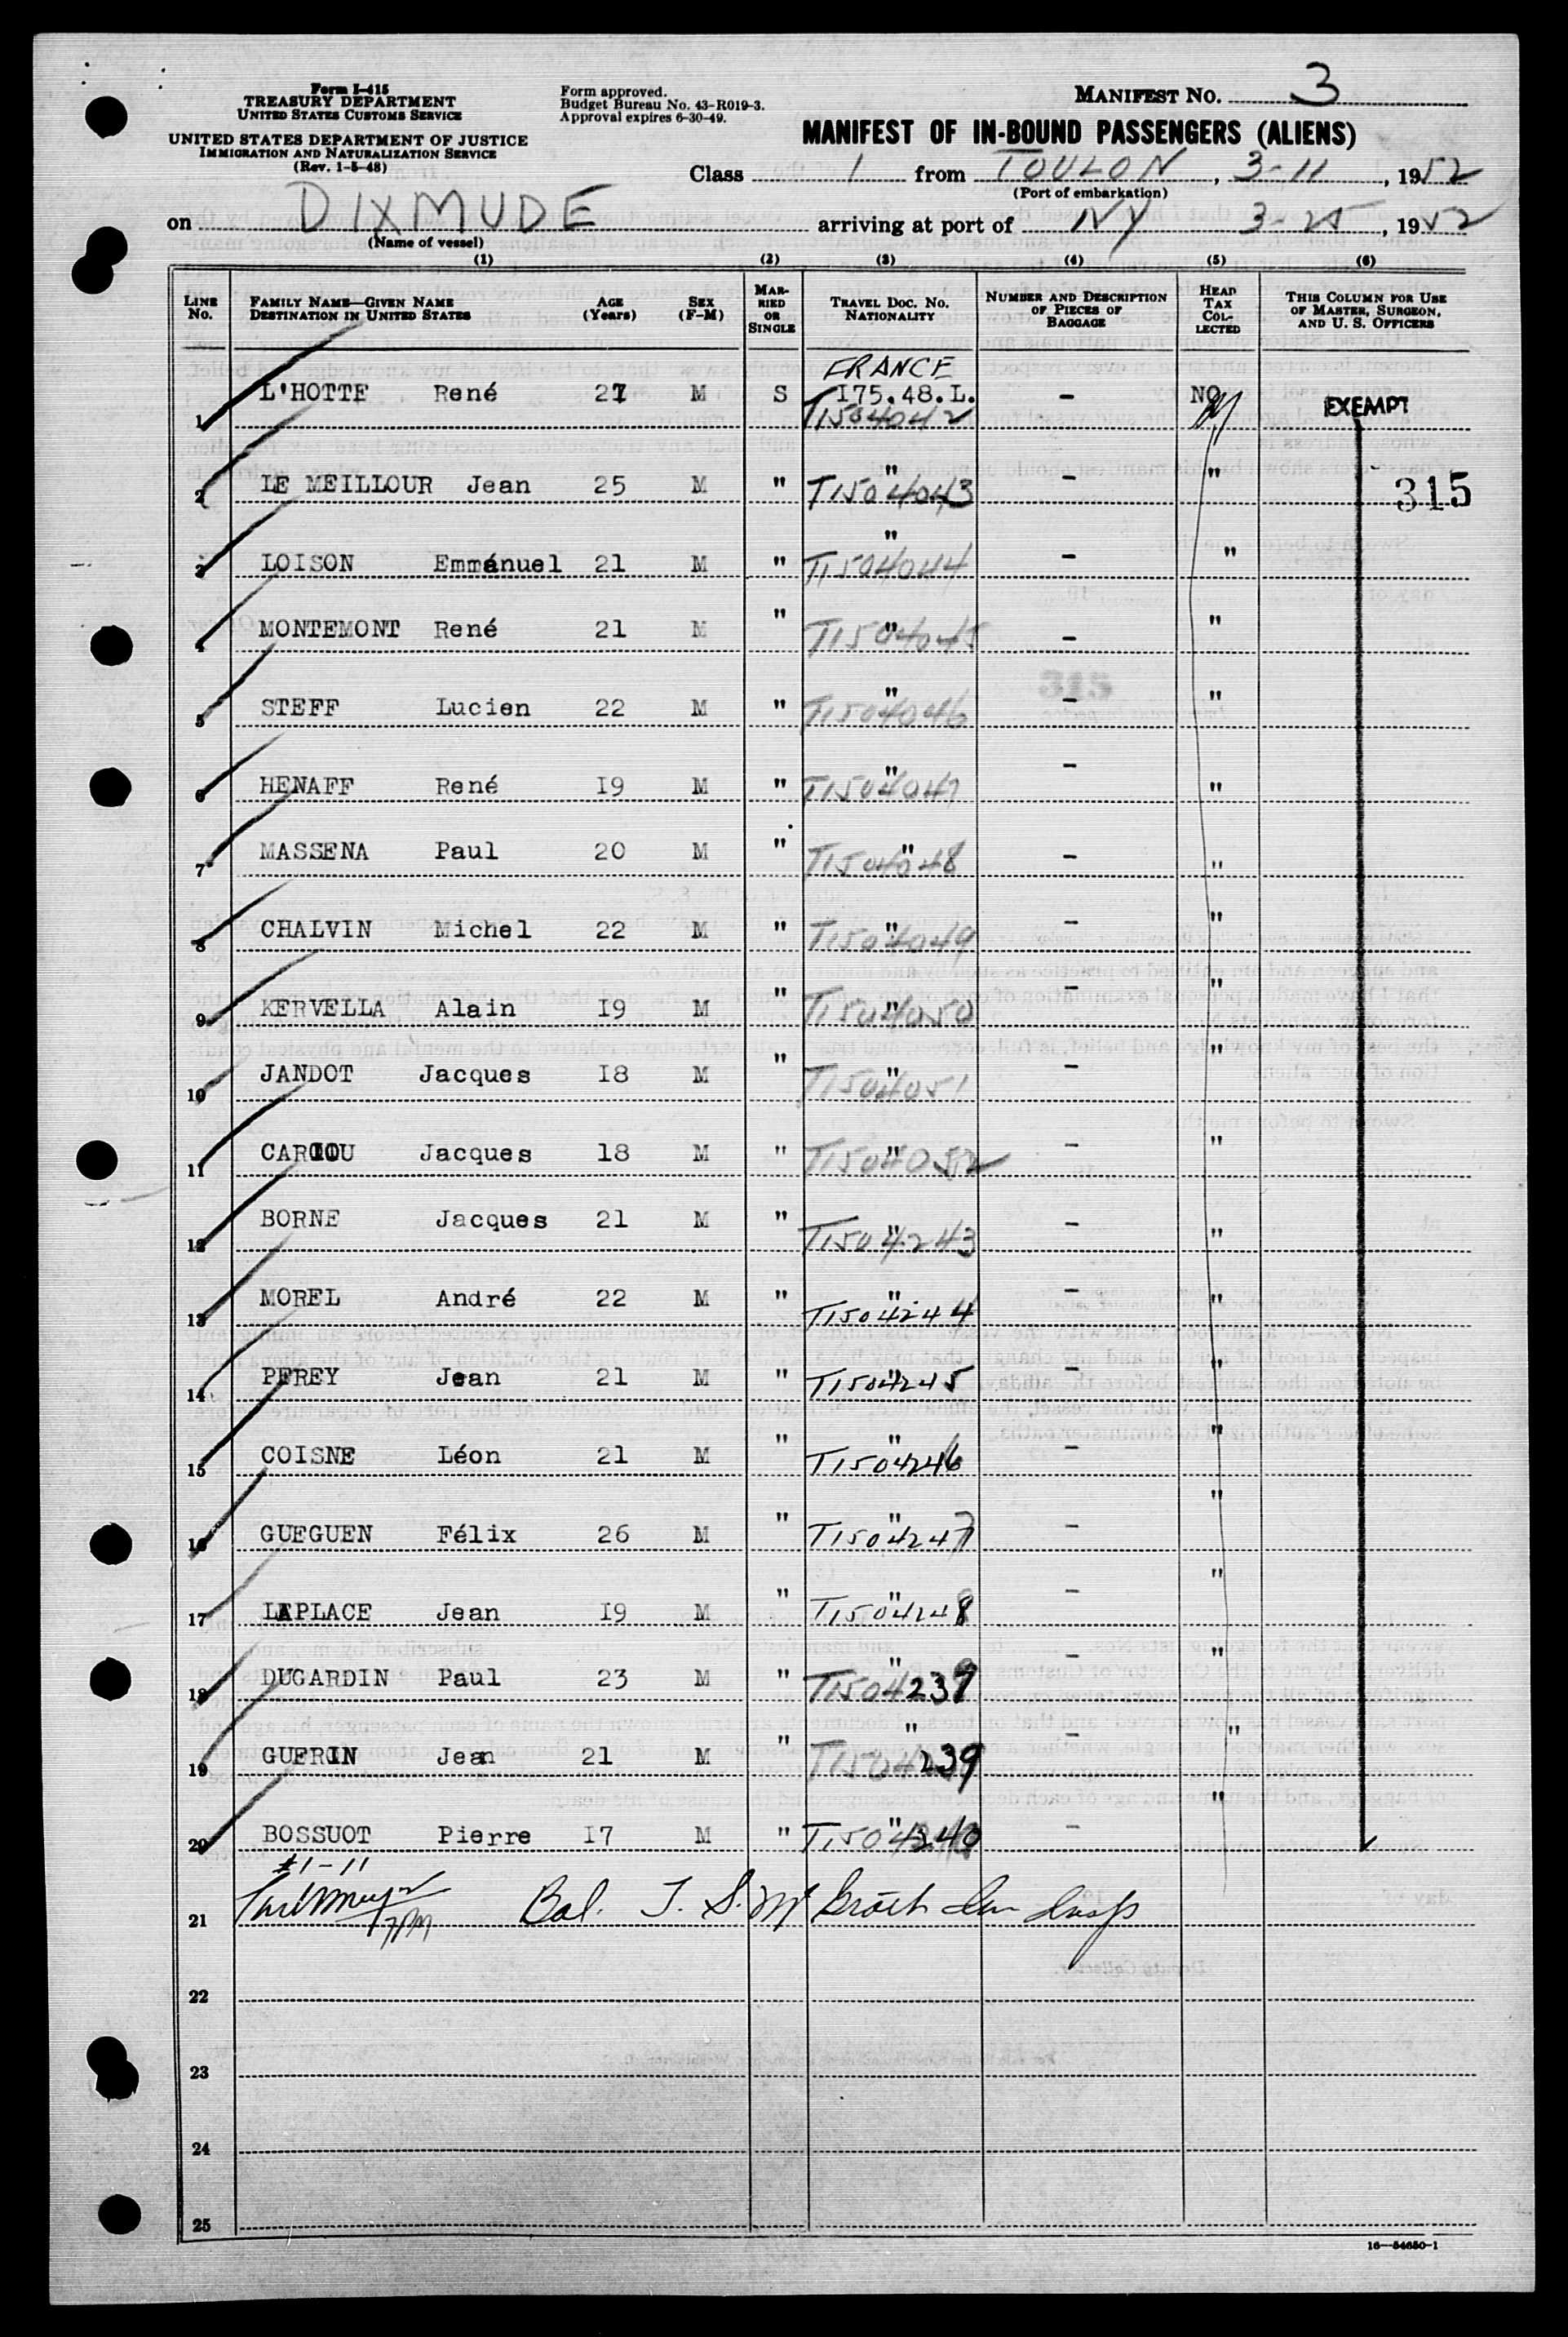 Form I-415
TREASURY DEPARTMENT
UNITED STATES CUSTOMS SERVICE
UNITED STATES DEPARTMENT OF JUSTICE
IMMIGRATION AND NATURALIZATION SERVICE
(Rev. 1-5-48)
Form approved.
Budget Bureau No. 43-R019-3.
Approval expires 6-30-49.
MANIFEST NO. 3
MANIFEST OF IN-BOUND PASSENGERS (ALIENS)
Class 1 from TOULON, 3-11, 1952
(Port of embarkation)
on DIXMUDE arriving at port of NY 3-25, 1952
(Name of vessel)
(1) (2) (3) (4) (5) (6)
LINE No. FAMILY NAME—GIVEN NAME DESTINATION IN UNITED STATES AGE (Years) SEX (F-M) MARRIED OR SINGLE TRAVEL DOC. NO. NATIONALITY NUMBER AND DESCRIPTION OF PIECES OF BAGGAGE HEAD TAX COLLECTED THIS COLUMN FOR USE OF MASTER, SURGEON, AND U. S. OFFICERS
FRANCE
1 L'HOTTE René 27 M S I75.48.L. - NO EXEMPT
T1504042
2 LE MEILLOUR Jean 25 M " " T1504043 - " 315
3 LOISON Emmánuel 21 M " " T1504044 - "
4 MONTEMONT René 21 M " " T1504045 - "
5 STEFF Lucien 22 M " " T1504046 - "
6 HENAFF René I9 M " " T1504047 - "
7 MASSENA Paul 20 M " " T1504048 - "
8 CHALVIN Michel 22 M " " T1504049 - "
9 KERVELLA Alain I9 M " " T1504050 - "
10 JANDOT Jacques I8 M " " T1504051 - "
11 CARIOU Jacques 18 M " " T1504052 - "
12 BORNE Jacques 21 M " " T1504243 - "
13 MOREL André 22 M " " T1504244 - "
14 PEREY Jean 21 M " " T1504245 - "
15 COISNE Léon 21 M " " T1504246 - "
16 GUEGUEN Félix 26 M " " T1504247 - "
17 LAPLACE Jean I9 M " " T1504248 - "
18 DUGARDIN Paul 23 M " " T1504239 - "
19 GUERIN Jean 21 M " " T1504239 - "
20 BOSSUOT Pierre I7 M " " T1504240 - "
#1-11
21 7PM Bal. T. S. Insp
22
23
24
25
16—54650-1